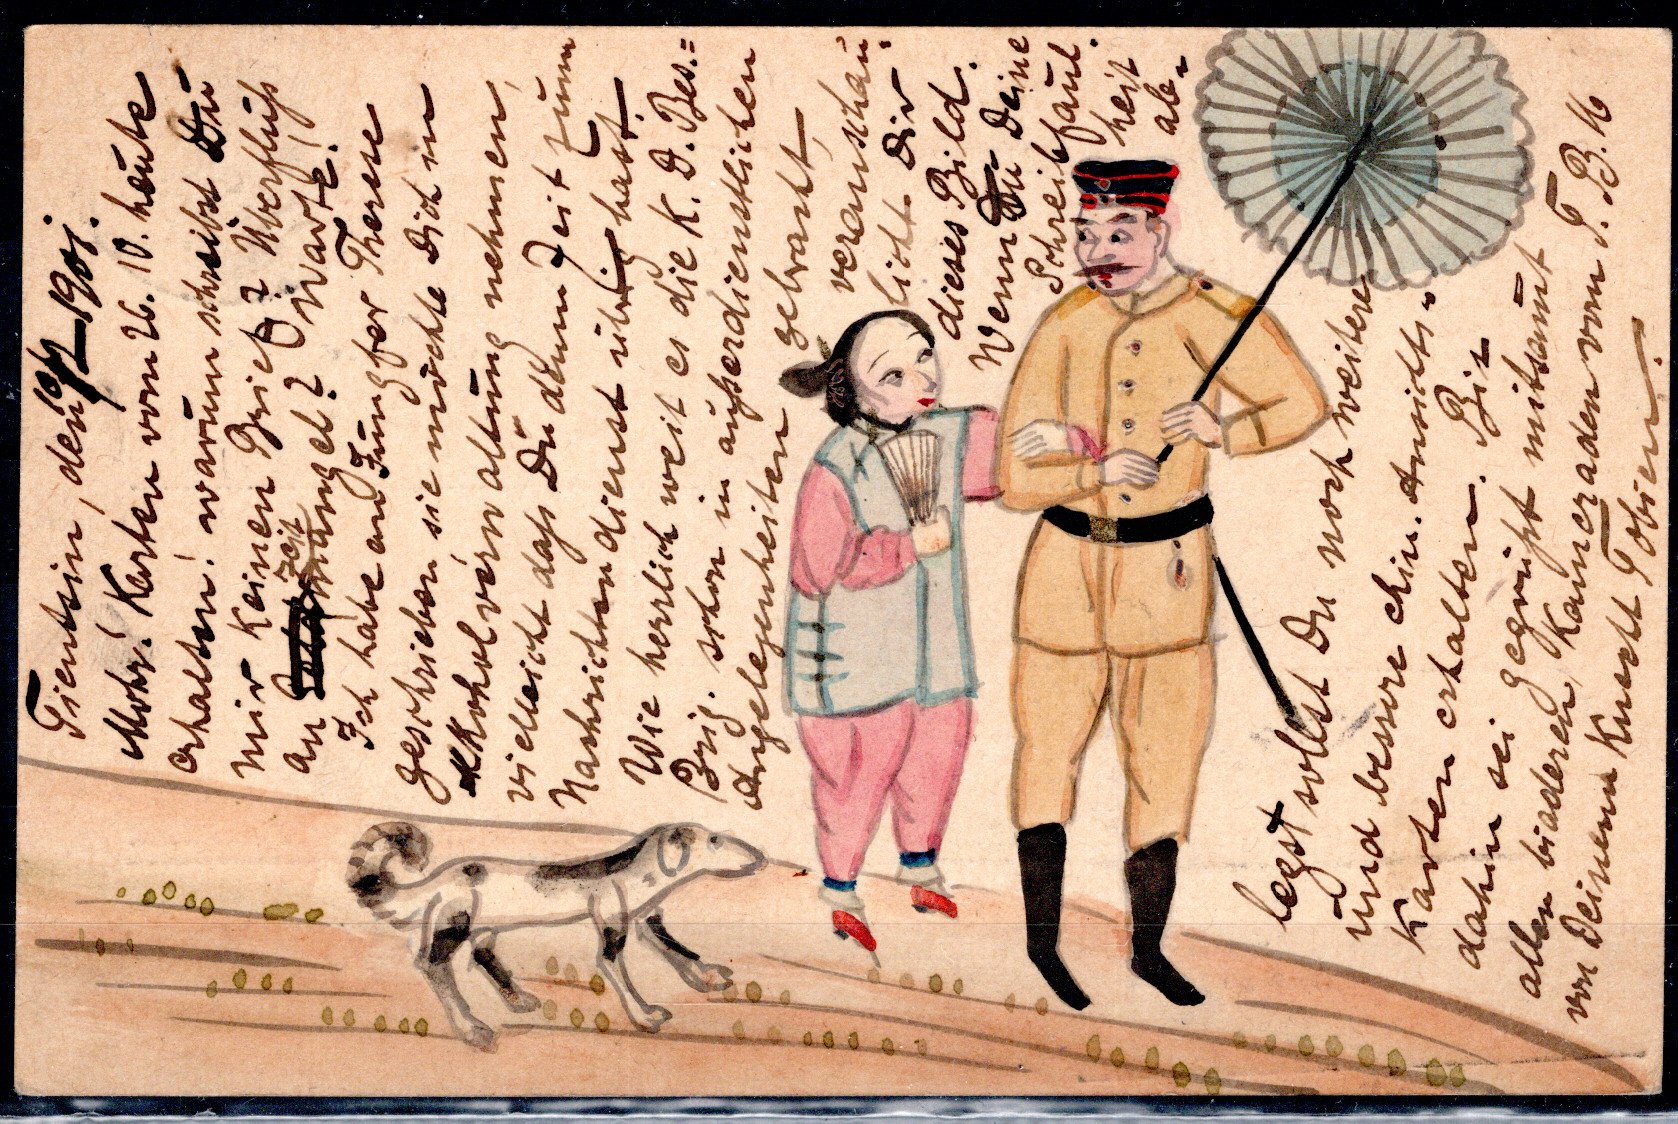 Tientsin, den 1901.
Mohr! Karten vom 26. 10. heute
erhalten! warum schreibst Du
mir keinen Brief? Überfluß
an Zeitmangel? Warte!
Ich habe an Jungfer Therese
geschrieben sie möchte Dich in
Alkoholverwaltung nehmen,
vielleicht daß Du dann Zeit zum
Nachrichtendienst übrig hast.
Wie herrlich weit es die K. D. Bes.=
Brig. schon in außerdienstlichen
Angelegenheiten gebracht,
veranschau
licht Dir
dieses Bild.
Wenn Du Deine
Schreibfaul
heit
ab=
legst sollst Du noch weitere
und bessere chin. Ansichts=
Karten erhalten. Bis
dahin sei gegrüßt mitsamt
allen biederen Kameraden vom T. B. 16
von Deinem Knecht Tobien.